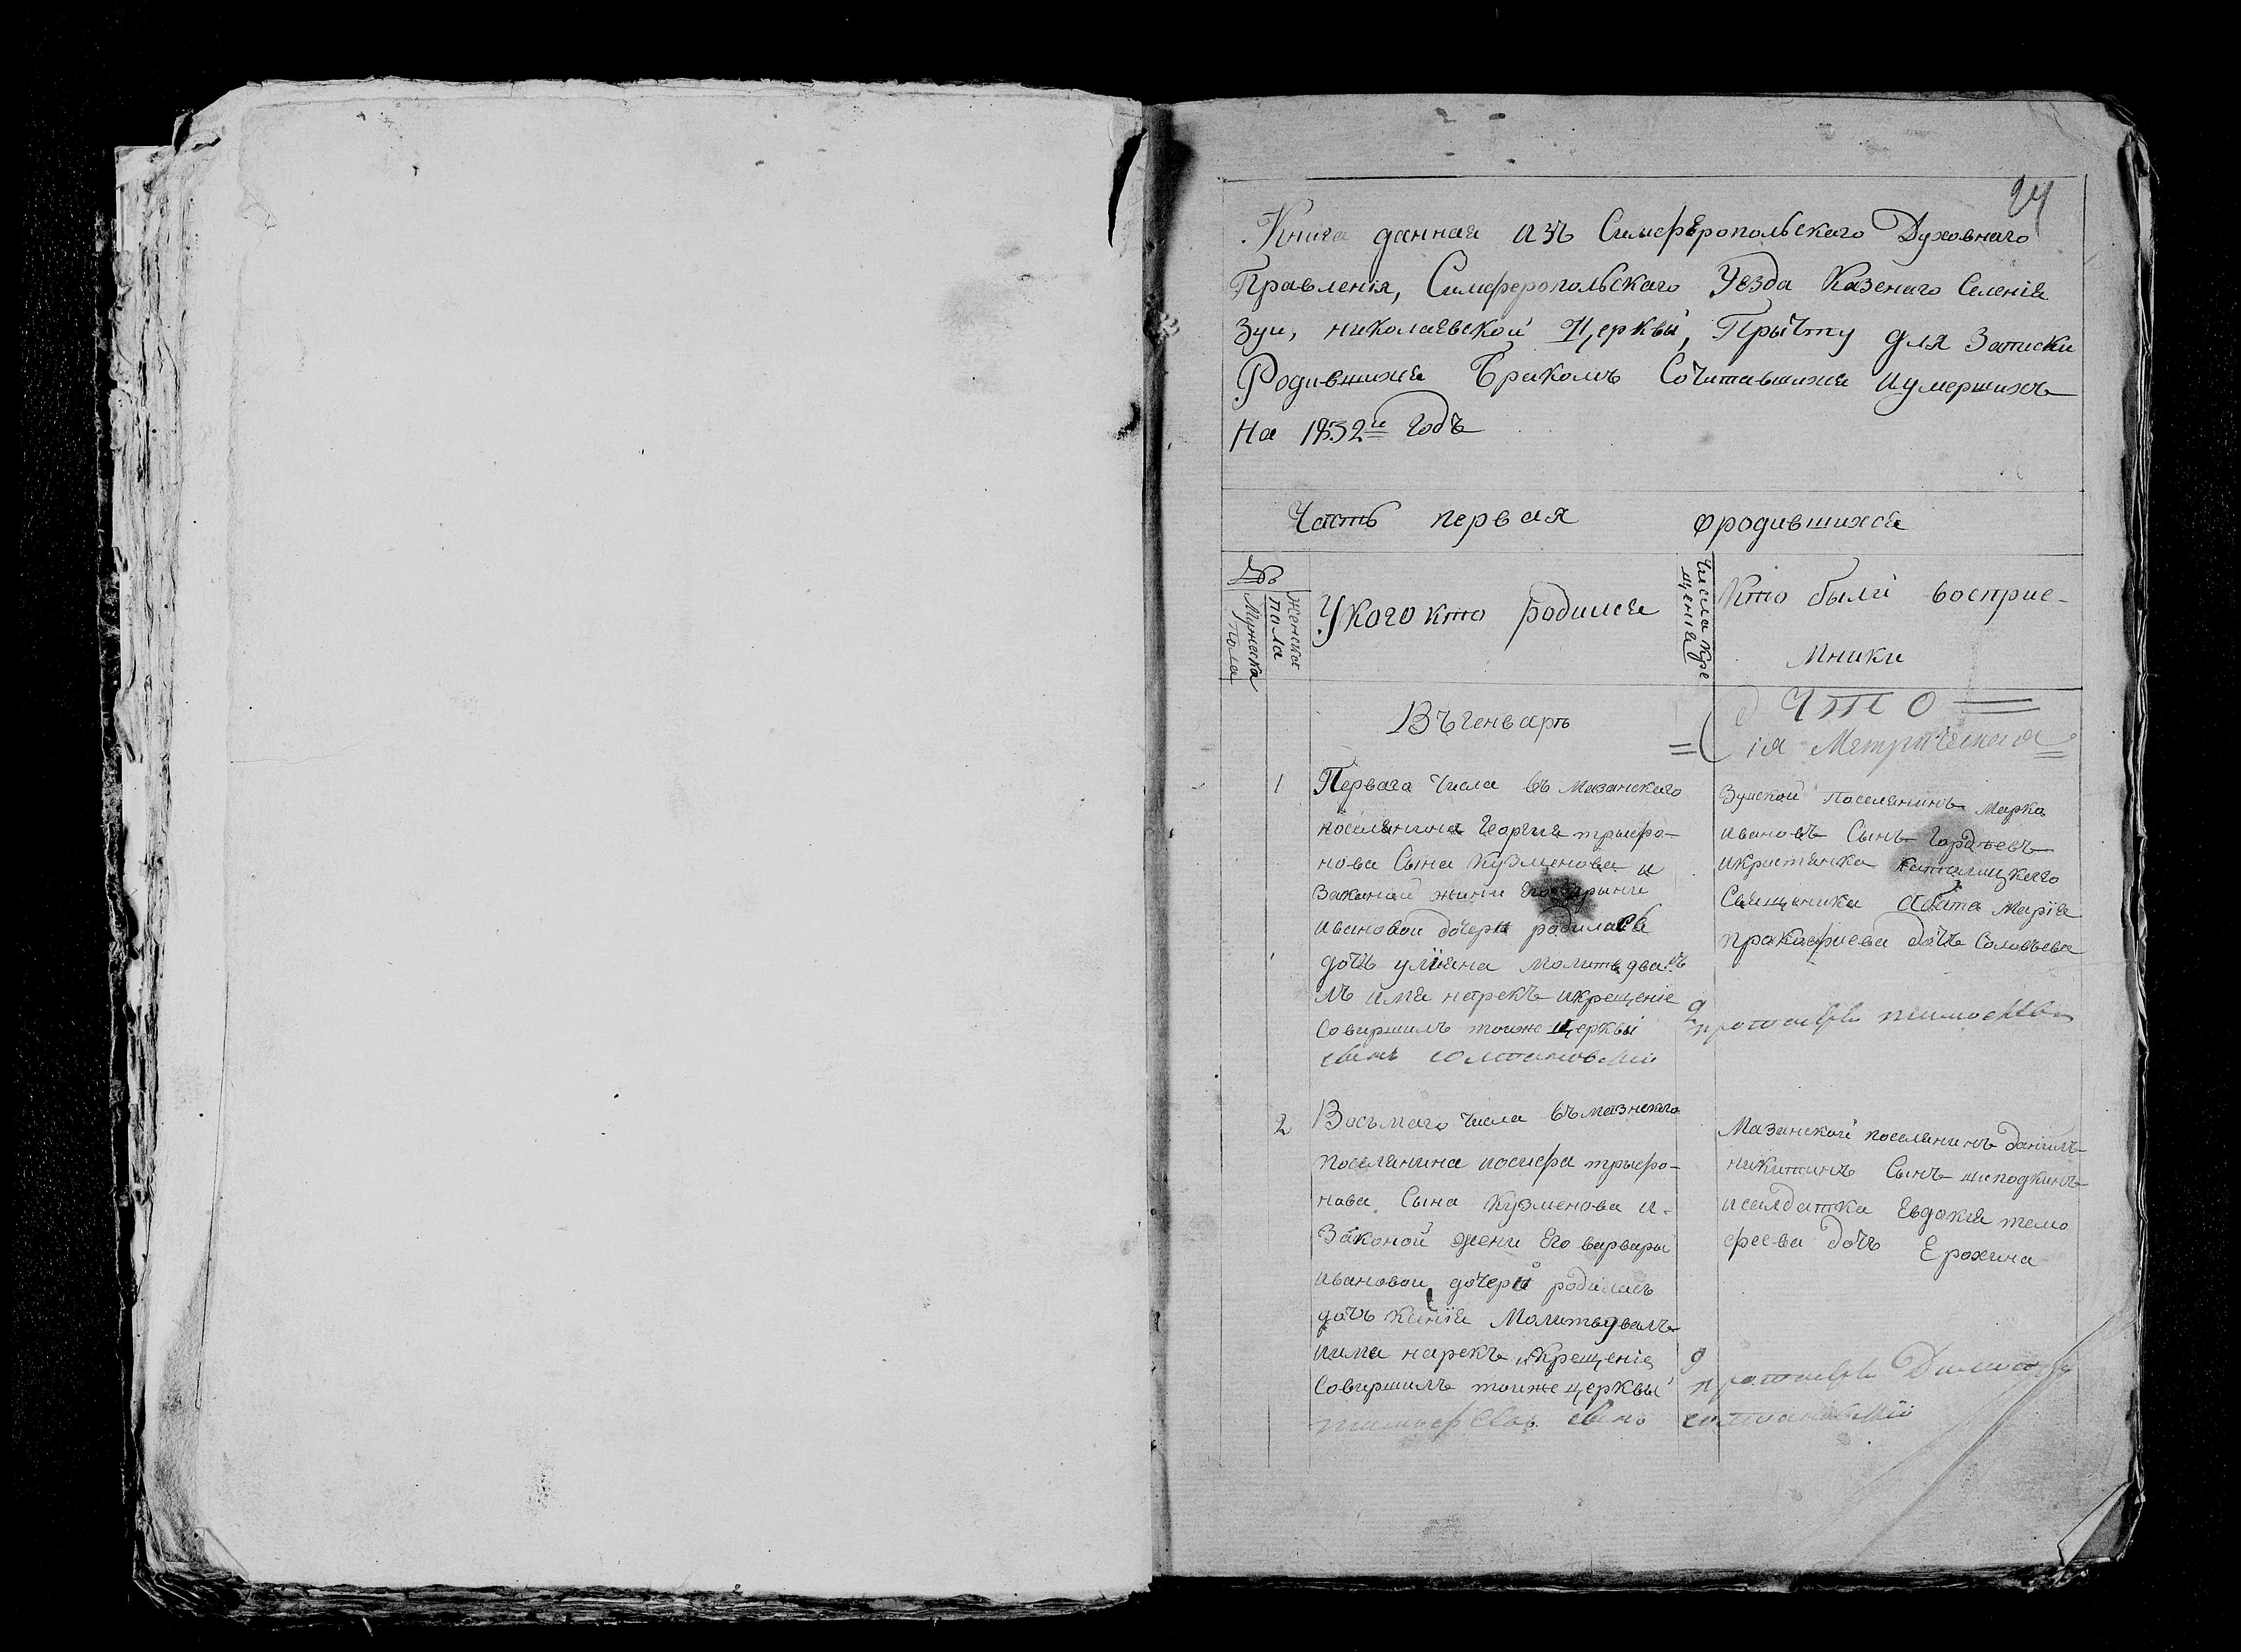 24
Книга данная изъ Симферопольскаго Духовнаго
Правленія, Симферопольскаго Уезда Казенаго Селенія
Зуи, николаевской Церквы, Прычту для Записки
Родившихся Бракомъ Сочитавшихся иумершихъ
На 1832й Годъ
Часть первая ородившихся
№
Женска пола
Мужеска пола
Укого кто родился
Числа кре щенія
Кто были восприе-
мники
Въ генварѣ
Что
ія Метрическая
1
Первага Числа въ мазанскаго
поселянина Георгия трыфо-
нова Сына Кузменова и
Законай жини Его Ирыни
ивановои дочери родилась
дочъ улияна Молитвдвалъ
имя нарекъ икрещеніе
Совиршилъ тоиже Церквы
Зуискои поселянинъ Марка
ивановъ Сынъ Гордѣевъ
икристянка католицкаго
Священика Абата Маріи
пракофиева дочъ Соловьева
2
2
Восьмаго Числа въ мазнскаго
поселянина иосифа трыфо-
нава Сына Кузменова и-
Законой жени Его варвары
ивановои дочери родилась
дочъ ксѣнія Молитвувалъ
имя нарекъ икрещеніе
Совиршилъ тоиже церквы
Мазанской поселянинъ данилъ
никитинъ Сынъ шеподкинъ
исалдатка Евдокия темо
феева дочъ Ерохина
9